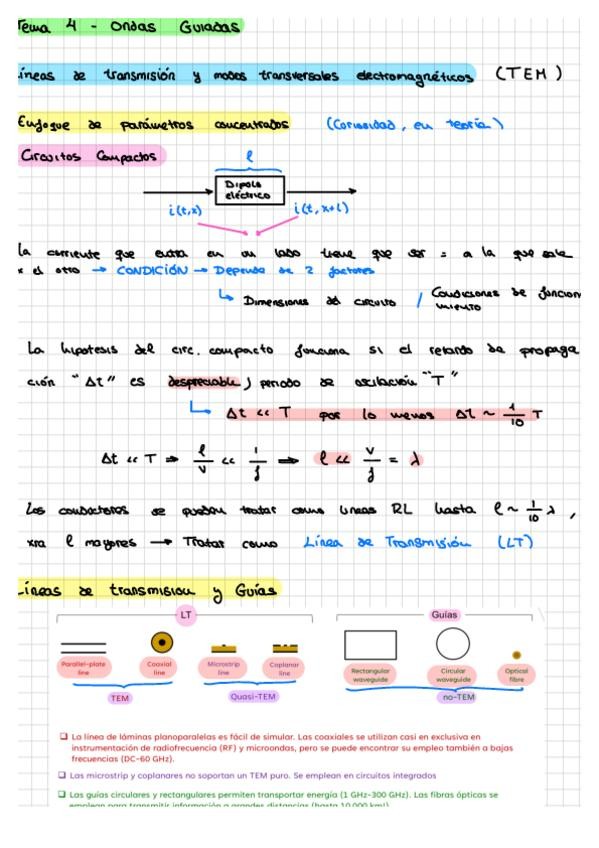 Tema 4 - Ondas Guiadas
Líneas de transmisión y modos transversales electromagnéticos (TEM)
Enfoque de parámetros concentrados (Curiosidad, en teoría)
Circuitos Compactos
l
Dipolo
eléctrico
i(t,x) i(t, x+l)
La corriente que entra en un lado tiene que ser = a la que sale
x el otro → CONDICIÓN → Depende de 2 factores
↳ Dimensiones del circuito / Condiciones de funcion
miento
La hipotesis del circ. compacto funciona si el retardo de propaga
ción "Δt" es despreciable) periodo de oscilación "T"
↳ Δt << T por lo menos Δt ~ 1/10 T
Δt << T ⇒ l/v << 1/f ⇒ l << v/f = λ
Los conductores se pueden tratar como lineas RL hasta l ~ 1/10 λ,
xra l mayores → Tratar como Línea de Transmisión (LT)
Líneas de transmisión y Guías
LT Guías
Parallel-plate
line
Coaxial
line
Microstrip
line
Coplanar
line
Rectangular
waveguide
Circular
waveguide
Optical
fibre
TEM Quasi-TEM no-TEM
❑ La línea de láminas planoparalelas es fácil de simular. Las coaxiales se utilizan casi en exclusiva en
instrumentación de radiofrecuencia (RF) y microondas, pero se puede encontrar su empleo también a bajas
frecuencias (DC-60 GHz).
❑ Las microstrip y coplanares no soportan un TEM puro. Se emplean en circuitos integrados
❑ Las guías circulares y rectangulares permiten transportar energía (1 GHz-300 GHz). Las fibras ópticas se
emplean para transmitir información a grandes distancias (hasta 10.000 km!)